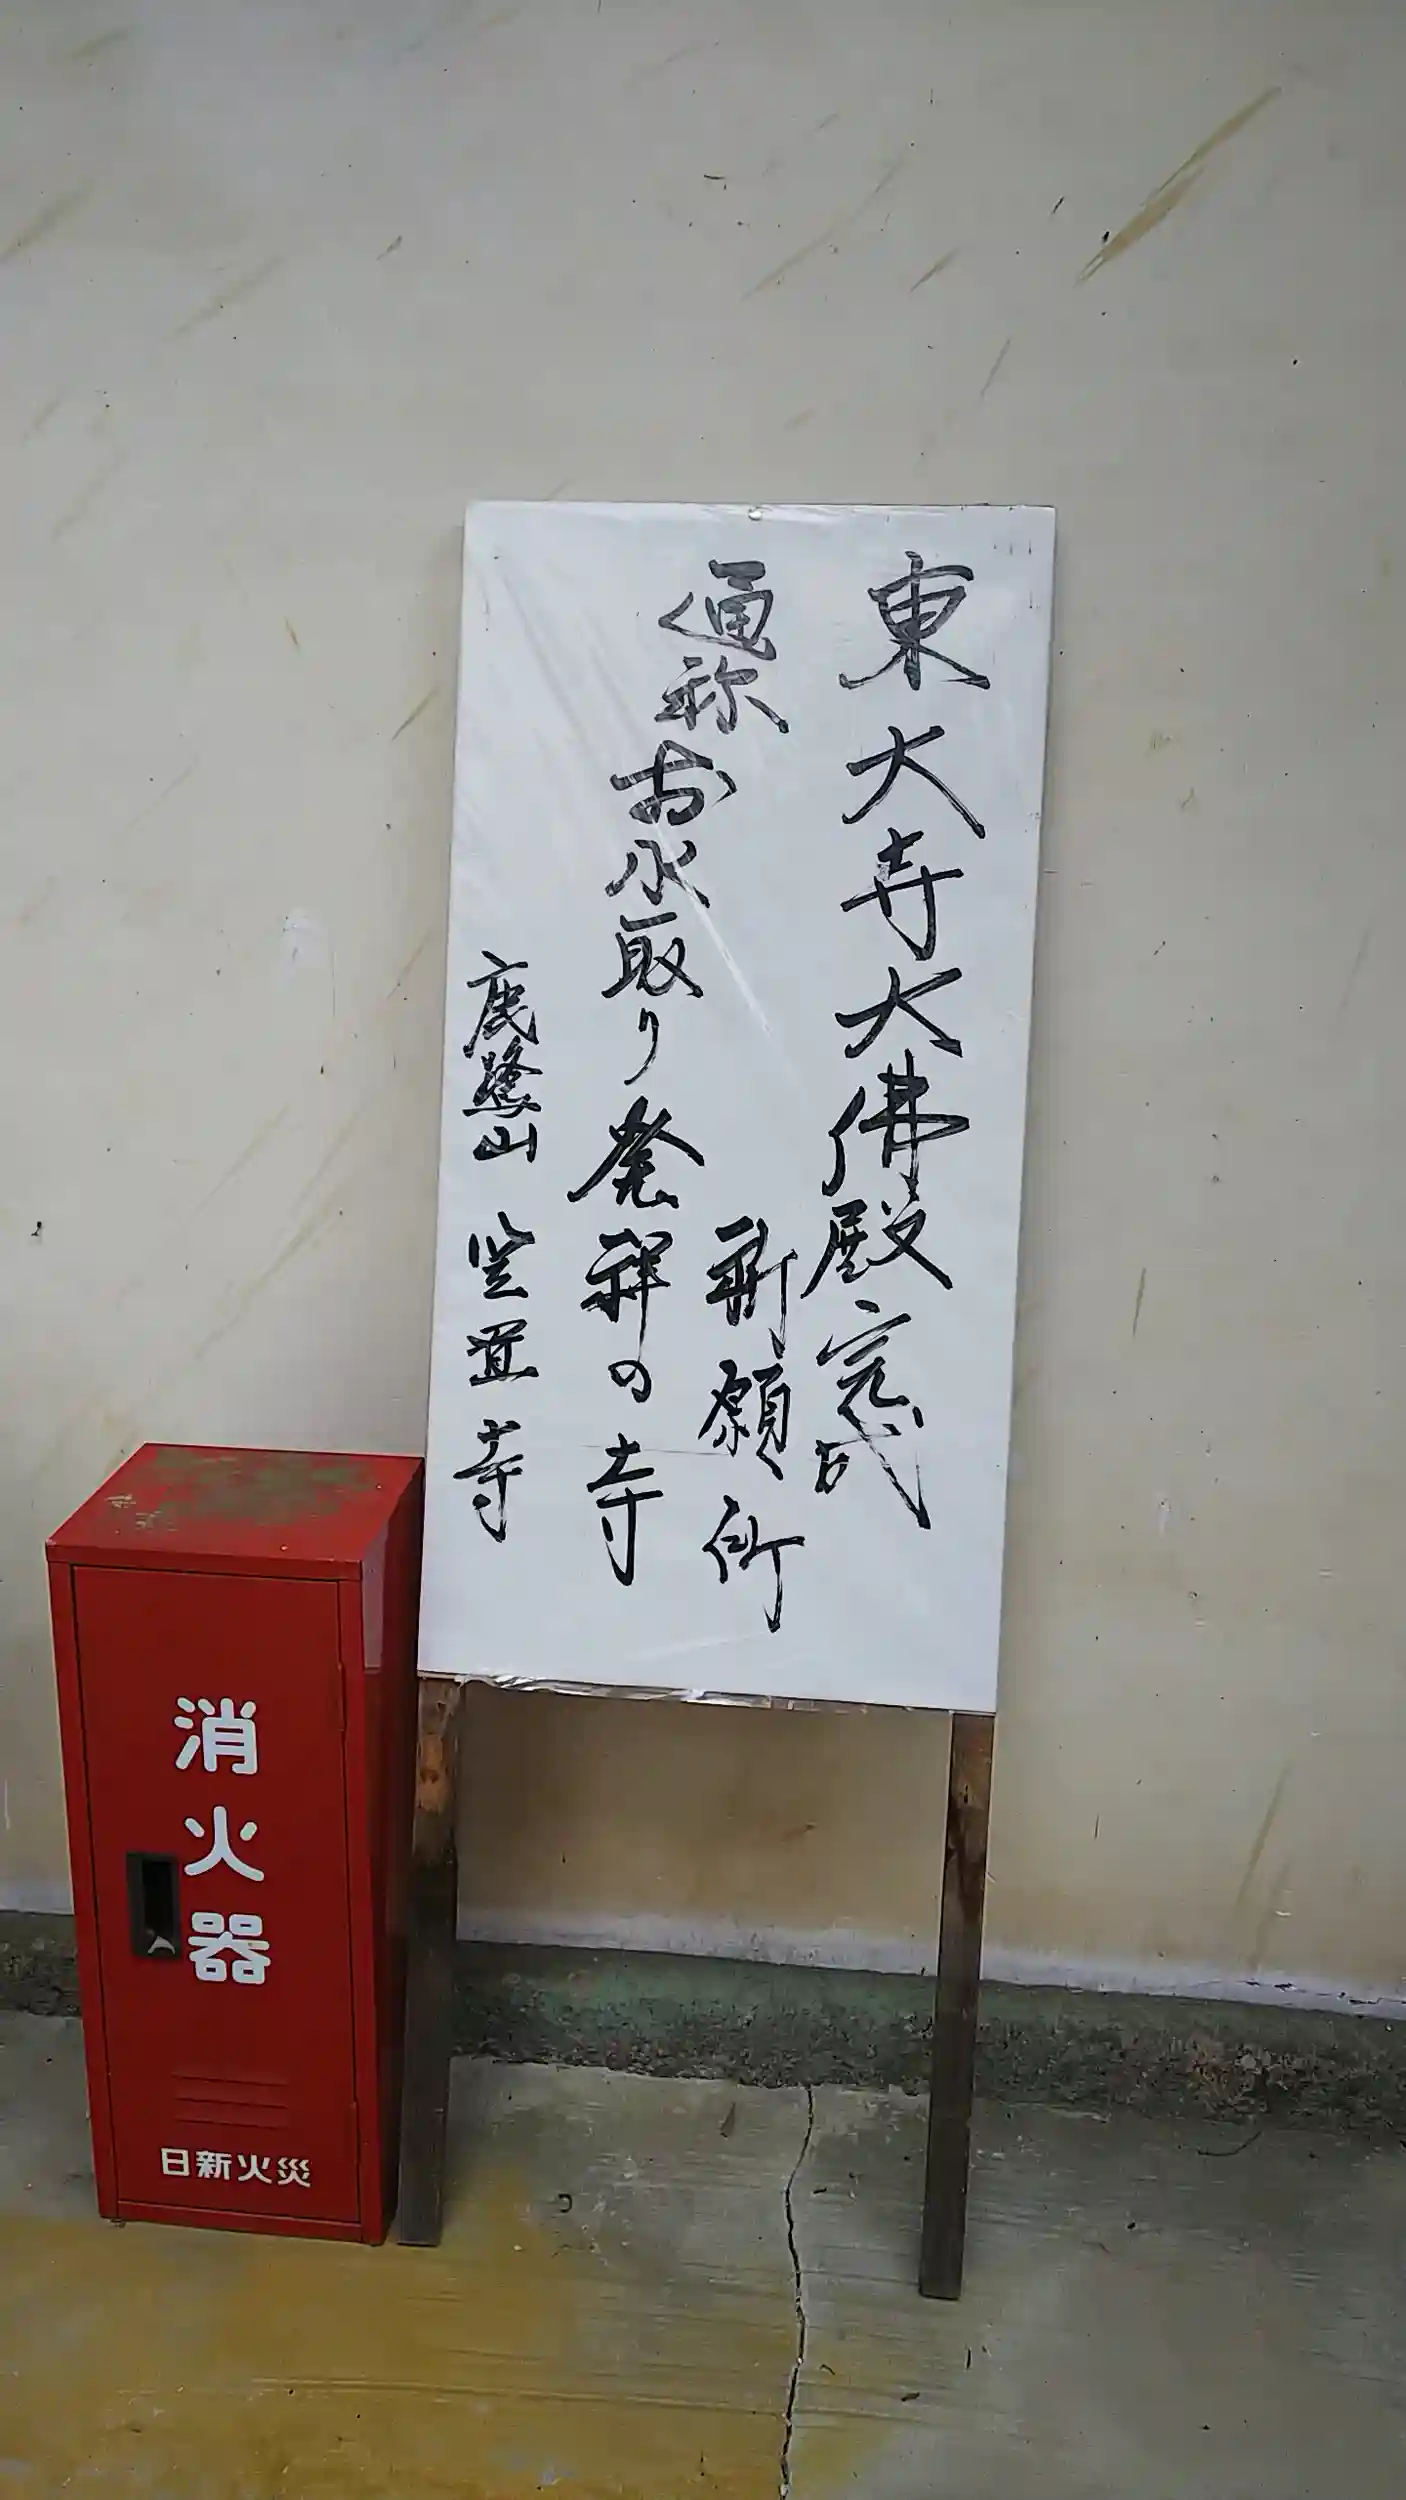 東大寺大佛殿完成
祈願所
通称お水取り発祥の寺
鹿鷺山 笠置寺
消火器
日新火災